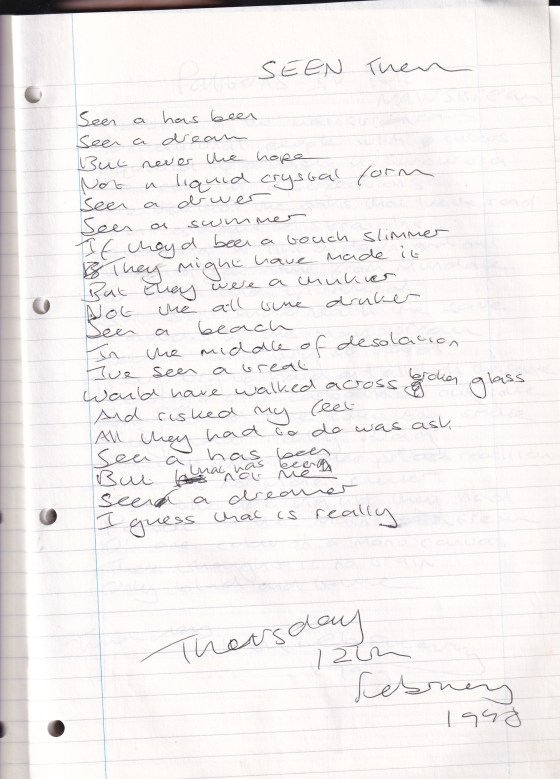 SEEN Them
Seen a has been
Seen a dream
But never the hope
Not a liquid crystal form
Seen a driver
Seen a swimmer
If theyd been a touch slimmer
They might have made it
But they were a
Not the all time drinker
Seen a beach
In the middle of desolation
Ive seen a treat
Would have walked across broken glass
And risked my feet
All they had to do was ask
Seen a has been
But that has been not me
Seen a dreamer
I guess that is really
Thursday
12th
February
1998